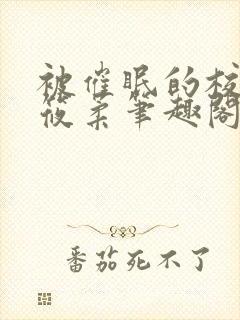 被催眠的校
筱柔笔趣阁
番茄死不了